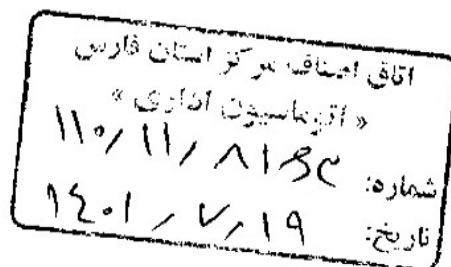 اتاق اصناف مرکز استان فارس
« اتوماسیون اداری »
شماره: ۱۱۰/۱۱/۸۱۶۳
تاریخ: ۱۴۰۱/۷/۱۹